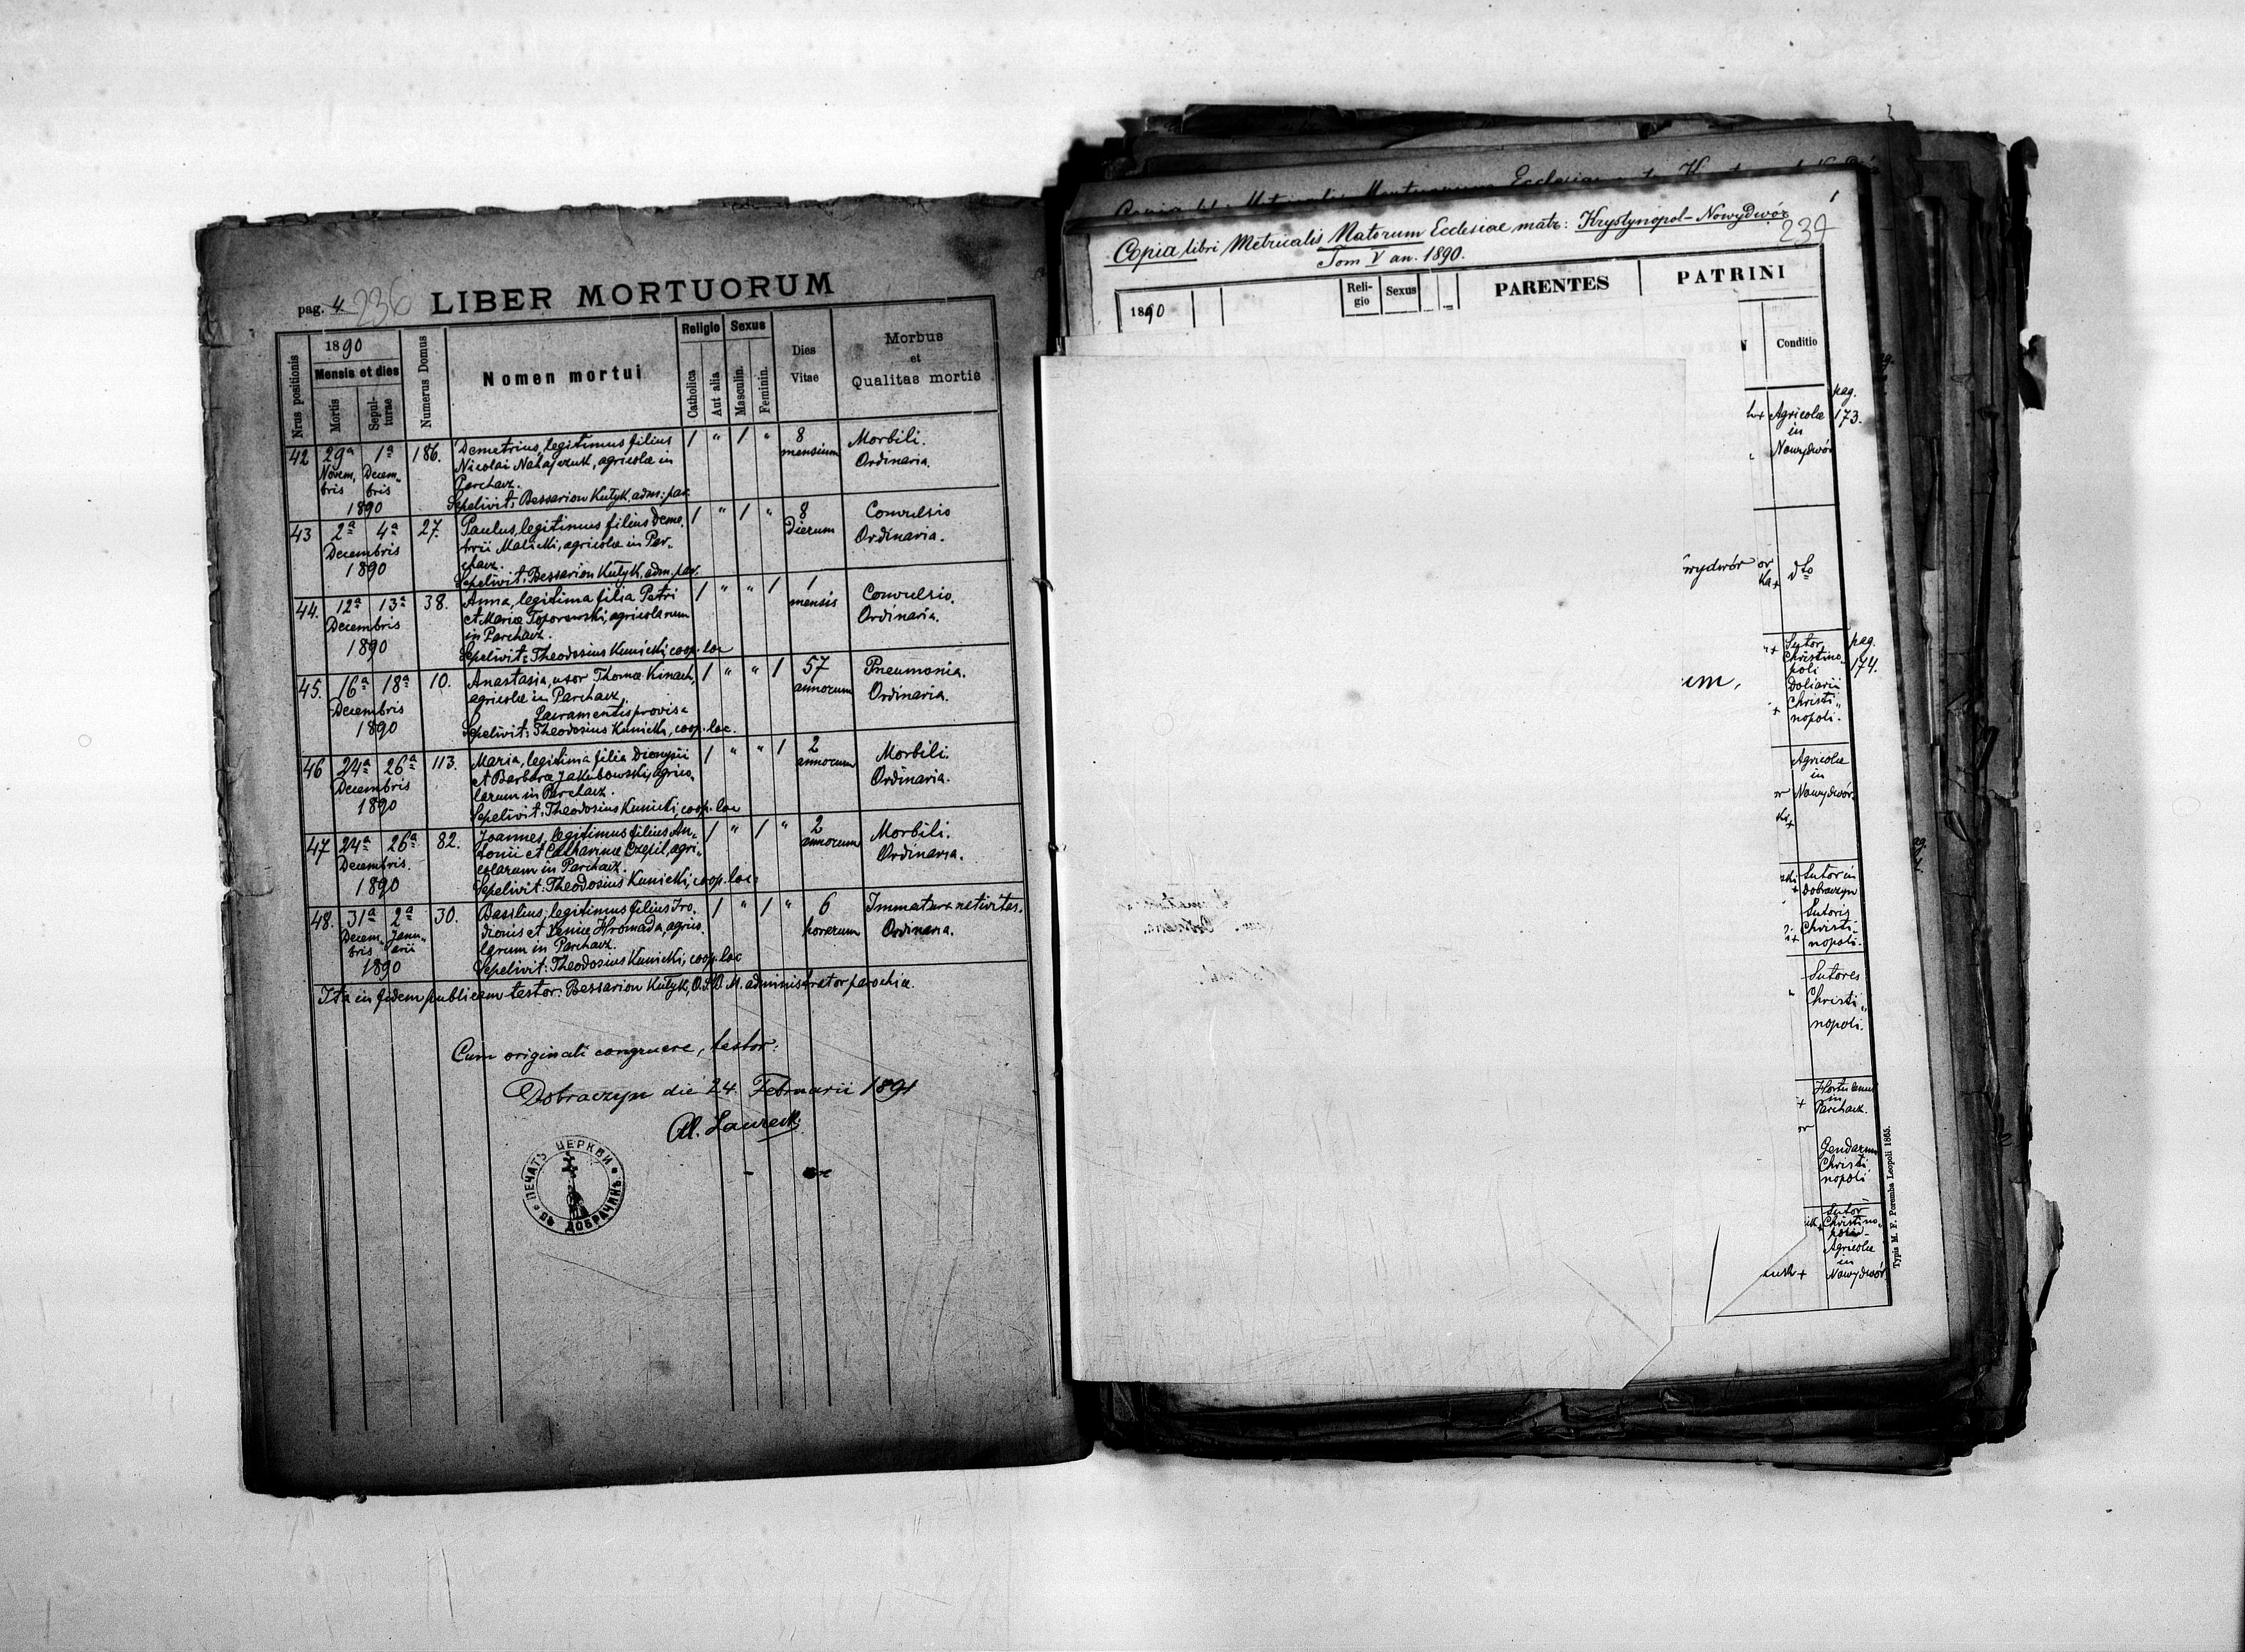 pag. 4 236 LIBER MORTUORUM
Nrus positionis
1890
Mensis et dies
Mortis
Sepulturae
Numerus Domus
Nomen mortui
Religio
Catholica
Aut alia
Sexus
Masculin.
Feminin.
Dies
Vitae
Morbus
et
Qualitas mortis
42 29a 1a 186. Demetrius, legitimus filius 1 " 1 " 8 Morbili.
Novem, Decem„ Nicolai agricolae in mensium Ordinaria.
bris bris Parchacz.
1890 Sepelivit: Bessarion Kutyk, adm: par.
43 2a 4a 27. Paulus, legitimus filius Deme„ 1 " 1 " 8 Convulsio
Decembris trii Malicki, agricolae in Par„ Dierum Ordinaria.
1890 chacz.
Sepelivit: Bessarion Kutyk, adm. par.
44. 12a 13a 38. Anna, legitima filia Petri 1 " " 1 1 Convulsio.
Decembris et Mariae Toporowski, agricolarum mensis Ordinaria.
1890 in Parchacz.
Sepelivit: Theodosius Kunicki, coop. loc
45. 16a 18a 10. Anastasia, uxor Thomae Kinach, 1 " " 1 57 Pneumonia.
Decembris agricolae in Parchacz. annorum Ordinaria.
1890 Sacramentis provisa
Sepelivit: Theodosius Kunicki, coop. loc.
46 24a 26a 113. Maria, legitima filia Dionysii 1 " " 1 2 Morbili.
Decembris et Barbarae Jakubowski, agrico„ annorum Ordinaria.
1890 larum in Parchacz.
Sepelivit: Theodosius Kunicki, coop. loc
47 24a 26a 82. Joannes, legitimus filius An„ 1 " 1 " 2 Morbili.
Decembris. tonii et Catharinae Czepil, agri„ annorum Ordinaria.
1890 colarum in Parchacz.
Sepelivit: Theodosius Kunicki, coop. loc:
48. 31a 2a 30. Basilius, legitimus filius Iro„ 1 " 1 " 6 Immatura nativitas.
Decem„ Janu„ dionis et Xeniae Hromada, agrico„ horarum Ordinaria.
bris arii larum in Parchacz.
1890 Sepelivit: Theodosius Kunicki, coop. loc
Ita in fidem publicam testor: Bessarion Kutyk, O.S.B.M. administrator parochiae.
Cum originali congruere, testor:
Dobraczyn die 24. Februarii 1891
Al. Laurecki
ПЕЧАТЬ ЦЕРКВИ
ВЪ ДОБРАЧИНѢ
Copia libri Metricalis Natorum Ecclesiae matr: Krystynopol-Nowydwór
Tom V an. 1890.
1
234
1890
Religio
Sexus
PARENTES
PATRINI
Conditio
pag.
173.
Agricolae
in
Nowydwór
wydwór
dto
um,
pag.
174.
Sutor
Christino„
poli
Doliarii
Christi„
nopoli.
Agricolae
in
Nowydwór.
Sutor in
Dobraczyn
Sutoris
Christi„
nopoli.
Sutores
Christi„
nopoli.
Hortulanus
in
Parchacz.
Gendarm
Christi
nopoli
Sutor
Christino„
poli
Agricolae
in
Nowydwór
Typis M. F. Poremba Leopoli 1865.